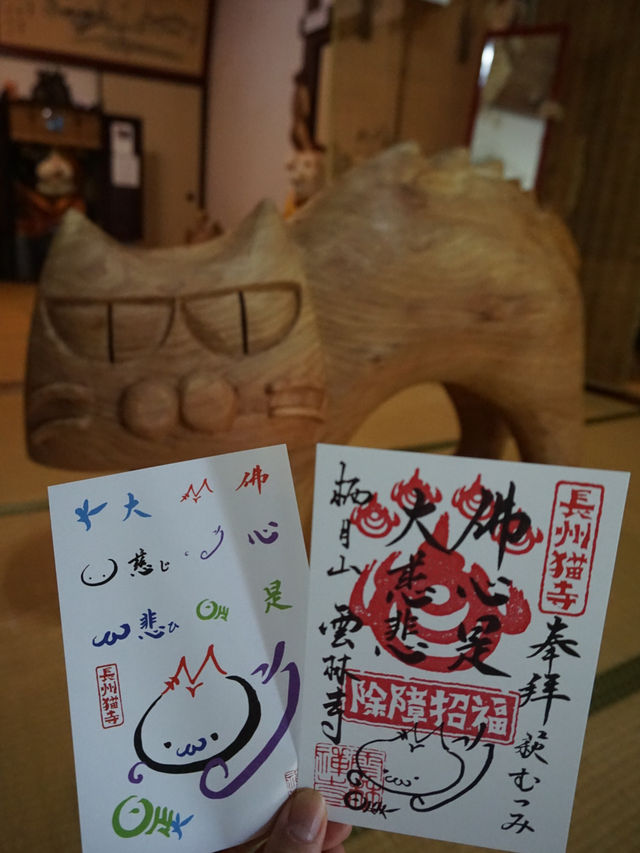 佛
心
是
大
慈じ
悲ひ
長州猫寺
長州猫寺
奉拝
萩むつみ
佛心是
大慈悲
除障招福
栖月山 雲林寺